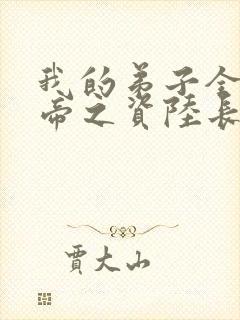 我的弟子全
帝之資陸長
賈大山